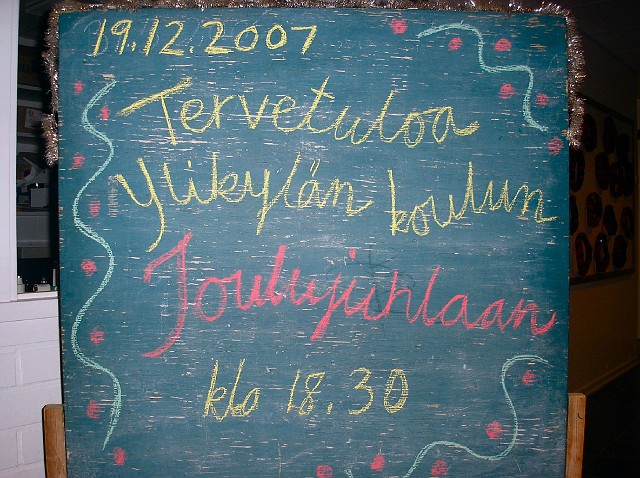 19.12.2007
Tervetuloa
Ylikylän koulun
Joulujuhlaan
klo 18.30